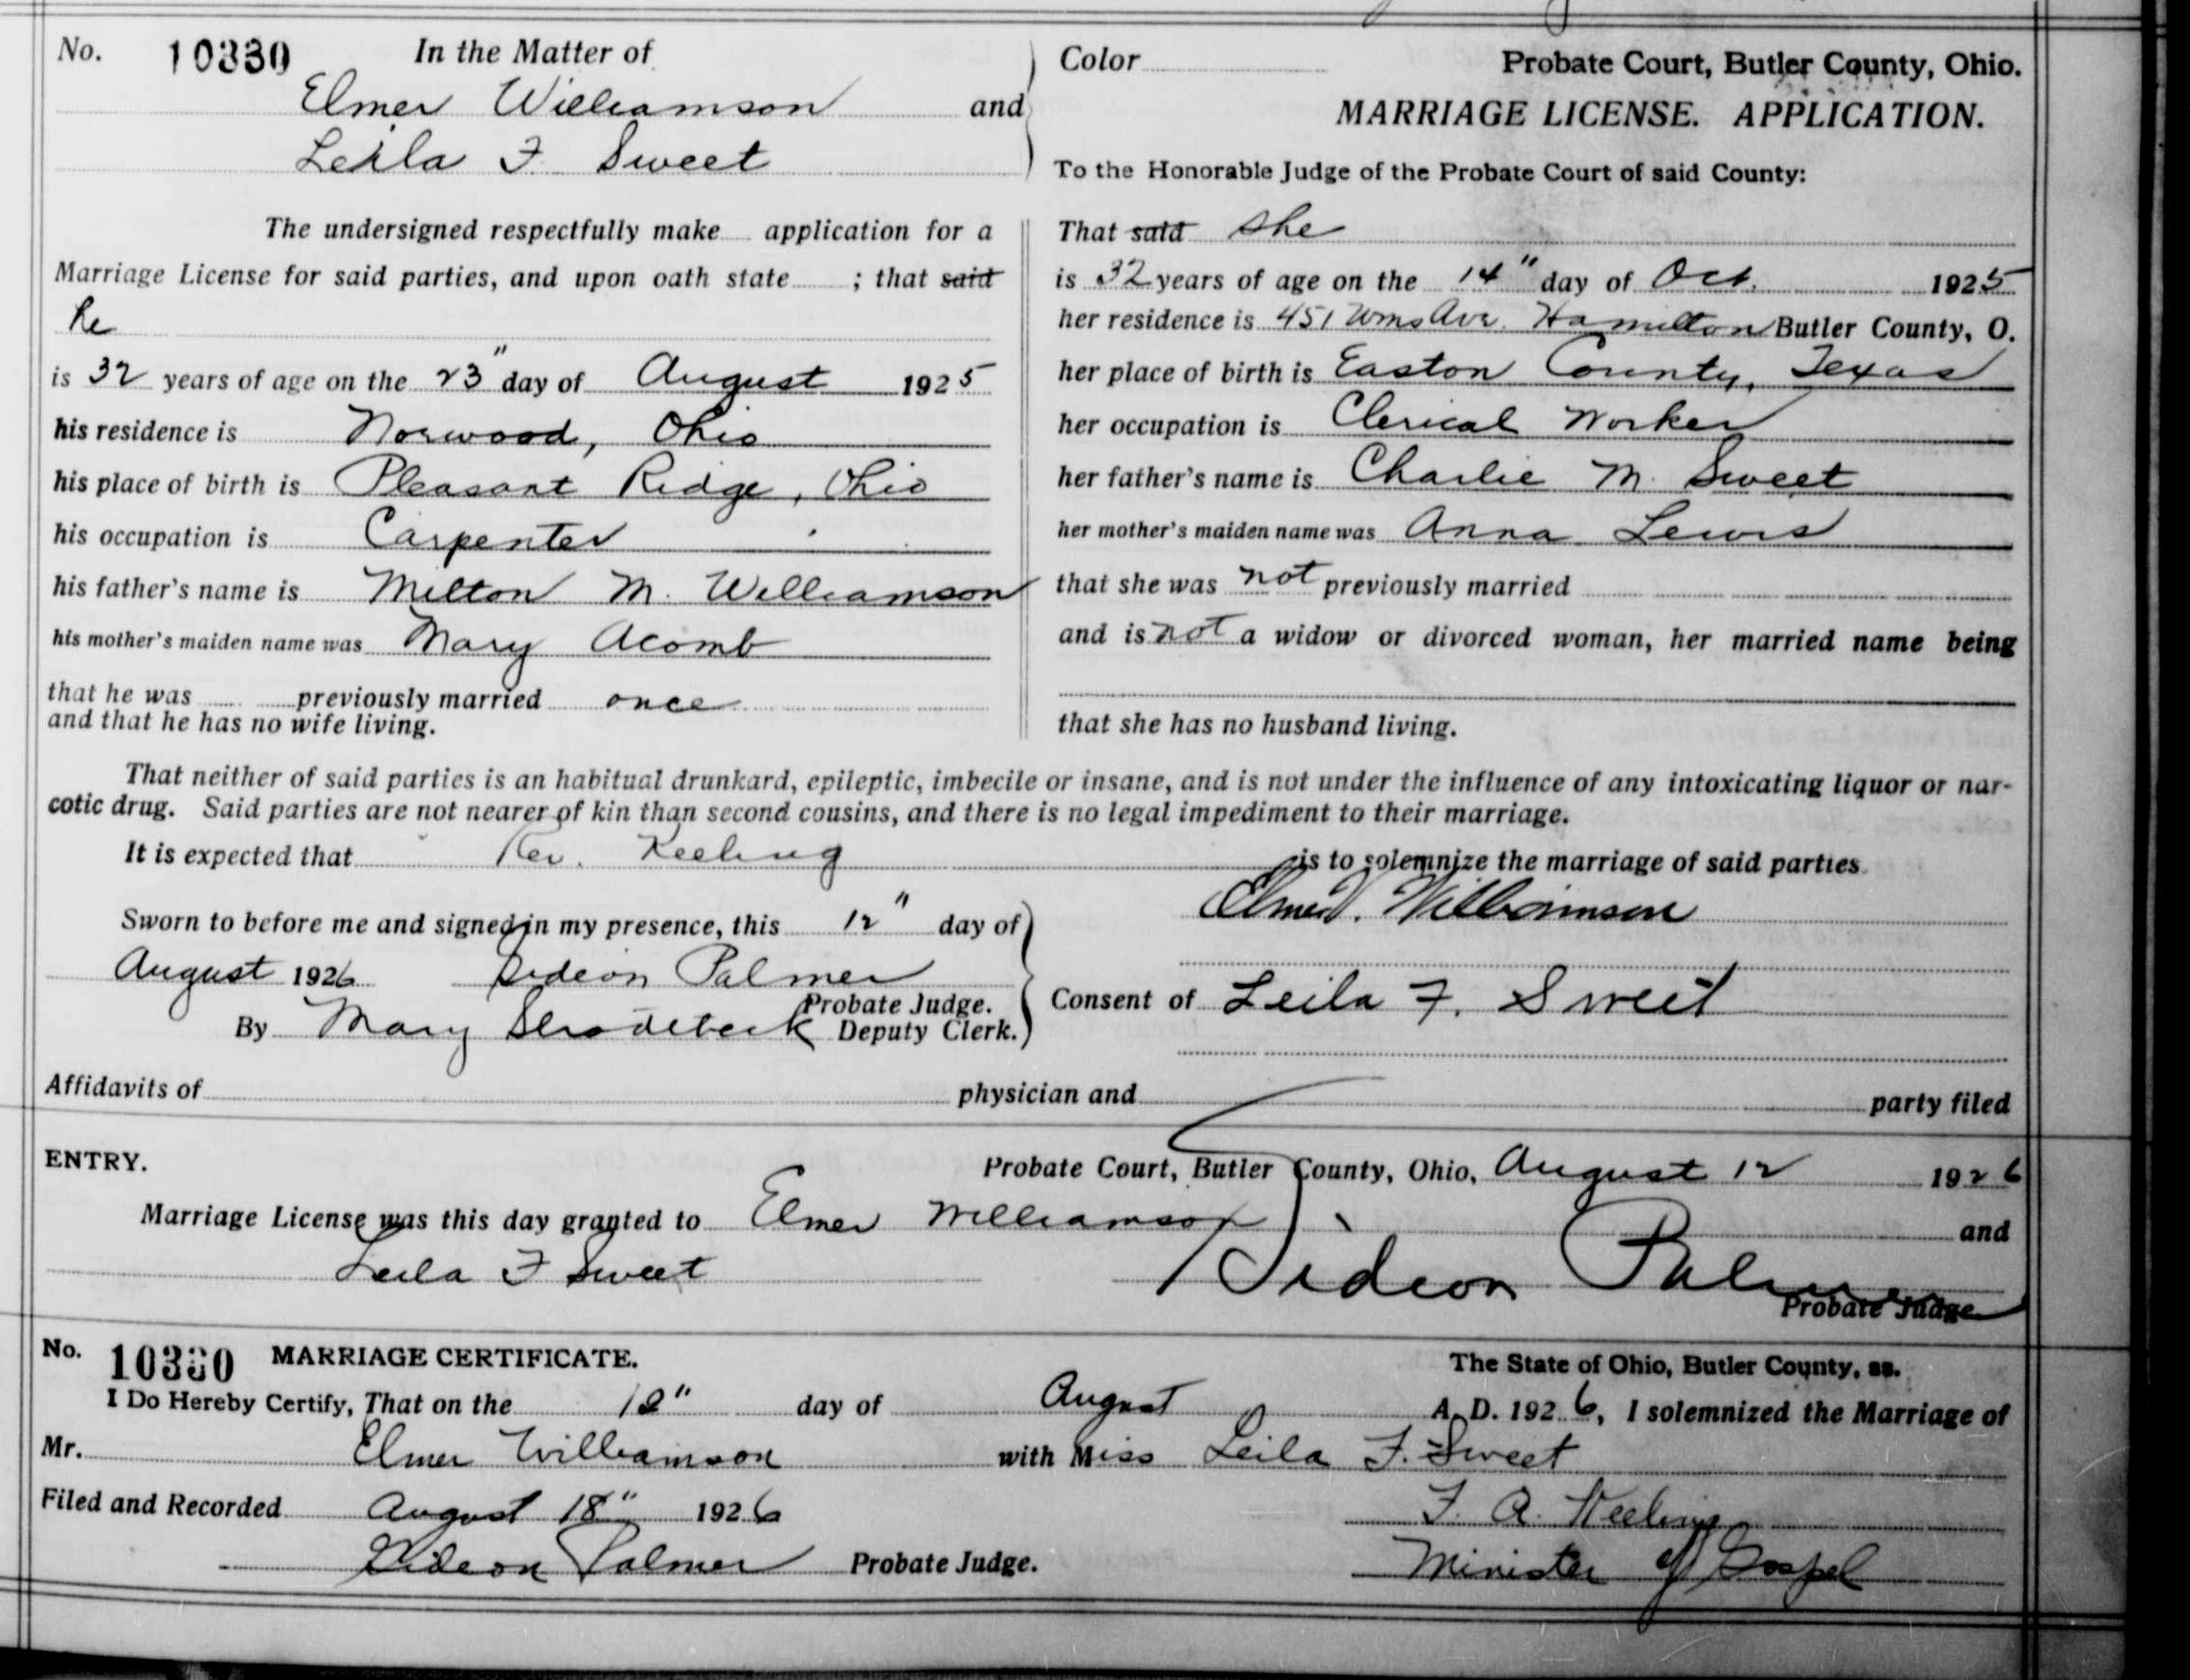 No. 10330 In the Matter of
Elmer Williamson and
Leila F. Sweet
The undersigned respectfully make application for a
Marriage License for said parties, and upon oath state ; that said
he
is 32 years of age on the 23" day of August 1925
his residence is Norwood, Ohio
his place of birth is Pleasant Ridge, Ohio
his occupation is Carpenter
his father's name is Milton M. Williamson
his mother's maiden name was Mary Acomb
that he was previously married once
and that he has no wife living.
Color Probate Court, Butler County, Ohio.
MARRIAGE LICENSE. APPLICATION.
To the Honorable Judge of the Probate Court of said County:
That said she
is 32 years of age on the 14" day of Oct. 1925
her residence is 451 Wms Ave. Hamilton Butler County, O.
her place of birth is Easton County, Texas
her occupation is Clerical Worker
her father's name is Charlie M. Sweet
her mother's maiden name was Anna Lewis
that she was not previously married
and is not a widow or divorced woman, her married name being
that she has no husband living.
That neither of said parties is an habitual drunkard, epileptic, imbecile or insane, and is not under the influence of any intoxicating liquor or nar-
cotic drug. Said parties are not nearer of kin than second cousins, and there is no legal impediment to their marriage.
It is expected that Rev. Keeling is to solemnize the marriage of said parties.
Sworn to before me and signed in my presence, this 12" day of
August 1926 Gideon Palmer
Probate Judge.
By Mary Deputy Clerk.
Elmer Williamson
Consent of Leila F. Sweet
Affidavits of physician and party filed
ENTRY. Probate Court, Butler County, Ohio, August 12 1926
Marriage License was this day granted to Elmer Williamson and
Leila F Sweet Gideon Palmer
Probate Judge
No. 10330 MARRIAGE CERTIFICATE. The State of Ohio, Butler County, ss.
I Do Hereby Certify, That on the day of August A. D. 1926, I solemnized the Marriage of
Mr. Elmer Williamson with Miss Leila F. Sweet
Filed and Recorded August 18" 1926 F. A. Keeling
Gideon Palmer Probate Judge. Minister of Gospel